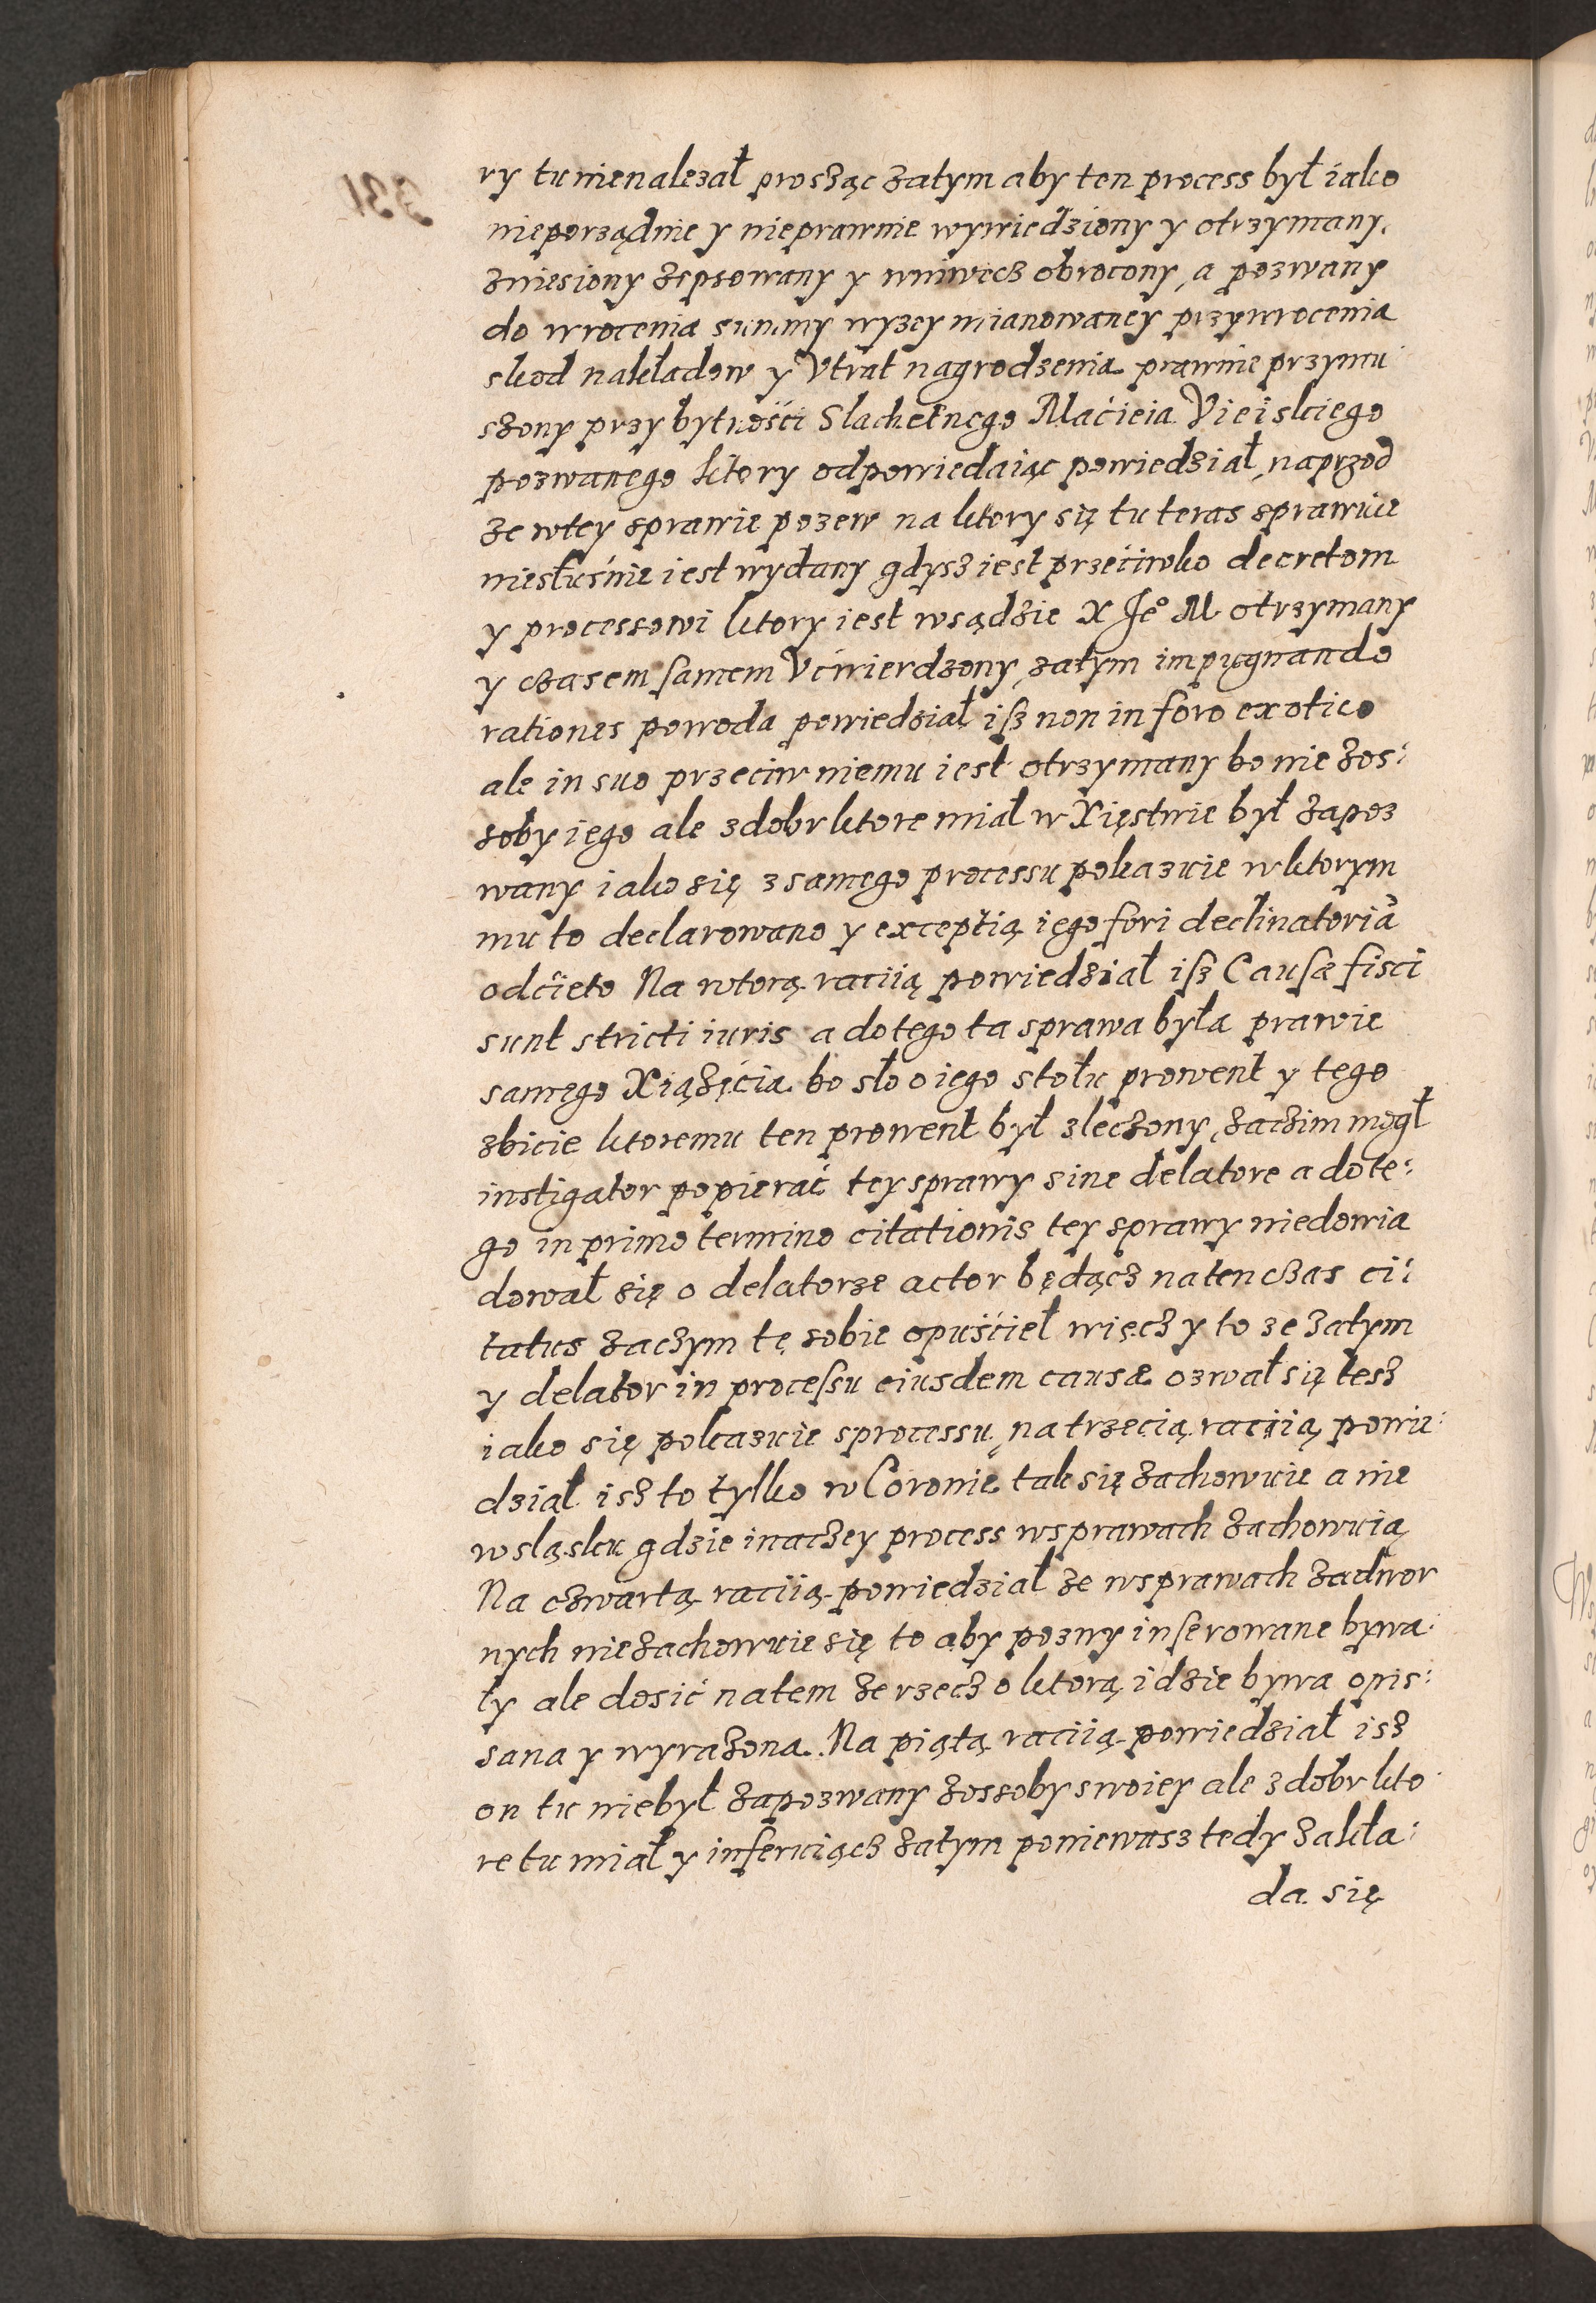 ry tu nienalezał proszącz zatym aby ten process był iako
nieporządnie y nieprawnie wywiedziony y otrzymany,
zniesiony zepsowany y wniwecz obrocony, a pozwany
do wrocenia summy wyzey mianowaney przywrocenia
skod nakładow y Vtrat nagrodzenia prawnie przymu
szony przy bytności Slachetnego Maćieia Vieiskiego
pozwanego ktory odpowiedaiąc powiedział, naprzod
ze wtey sprawie pozew na ktory się tu teras sprawuie
niesłusnie iest wydany gdysz iest przećiwko decretom
y processowi ktory iest wsądzie X Jeº M otrzymany
y czasem samem Vćwierdzony, zatym impugnando
rationes powoda powiedział isz non in foro exotico
ale in suo przeciw niemu iest otrzymany bo nie zos:
soby iego ale zdobr ktore miał w Xięstwie był zapoz
wany iako się z samego processu pokazuie wktorym
mu to declarowano y exceptią iego fori declinatoriã
odćieto Na wtorą raciią powiedział isz Causæ fisci
sunt stricti iuris a dotego ta sprawa była prawie
samego Xiązęćia bo sło o iego stołu prowent y tego
zbicie ktoremu ten prowent był zleczony, zaczim mogł
instigator popierać tey sprawy sine delatore a dote:
go in primo termino citationis tey sprawy niedowia
dował się o delatorze actor będącz natenczas ci:
tatus zaczym tę sobie opuśćieł więcz y to ze zatym
y delator in processu eiusdem causæ ozwał się tesz
iako się pokazuie sprocessu, na trzecią raciią powie:
dział isz to tylko w Coronie tak się zachowuie a nie
wsląsku gdzie inaczey process wsprawach zachowuią
Na czwartą raciią powiedział ze wsprawach zadwor
nych niezachowuie się to aby pozwy inserowane bywa:
ły ale dosić natem ze rzecz o ktorą idzie bywa opis:
sana y wyrazona. Na piątą raciią powiedział isz
on tu niebył zapozwany zossoby swoiey ale zdobr kto
re tu miał y inferuiącz zatym poniewasz tedy zakła:
da się
331